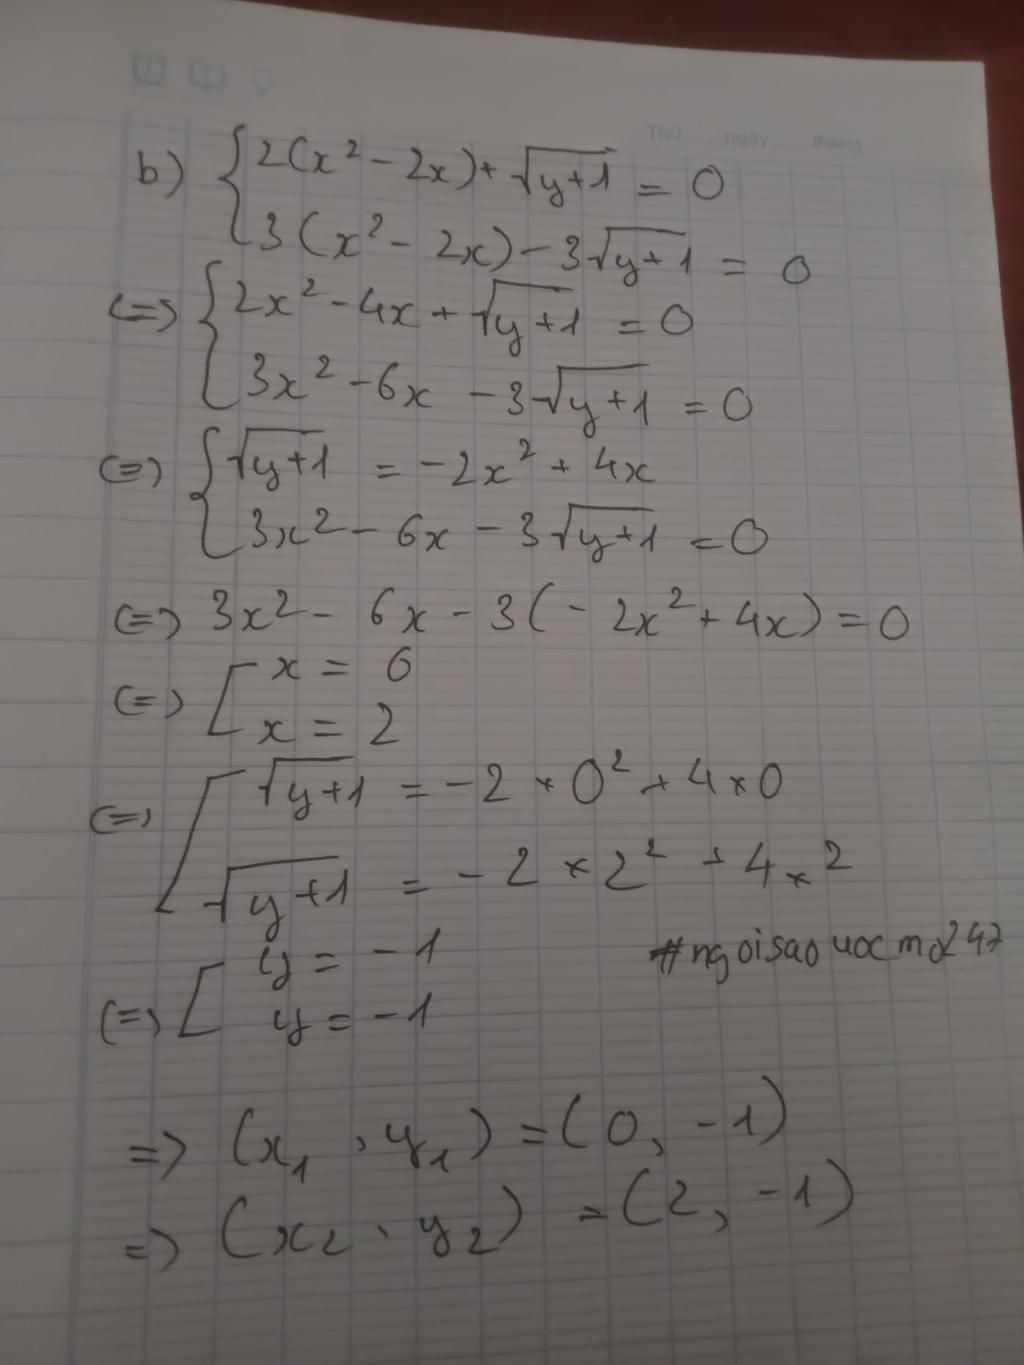 Thứ ngày tháng
b) { 2(x² - 2x) + √(y+1) = 0
3(x² - 2x) - 3√(y+1) = 0
(=) { 2x² - 4x + √(y+1) = 0
3x² - 6x - 3√(y+1) = 0
(=) { √(y+1) = -2x² + 4x
3x² - 6x - 3√(y+1) = 0
(=) 3x² - 6x - 3(-2x² + 4x) = 0
(=) [ x = 0
x = 2
(=) [ √(y+1) = -2 * 0² + 4 * 0
√(y+1) = -2 × 2² + 4 × 2
(=) [ y = -1
y = -1
#ngoisaouocmo247
=> (x₁, y₁) = (0, -1)
=> (x₂, y₂) = (2, -1)